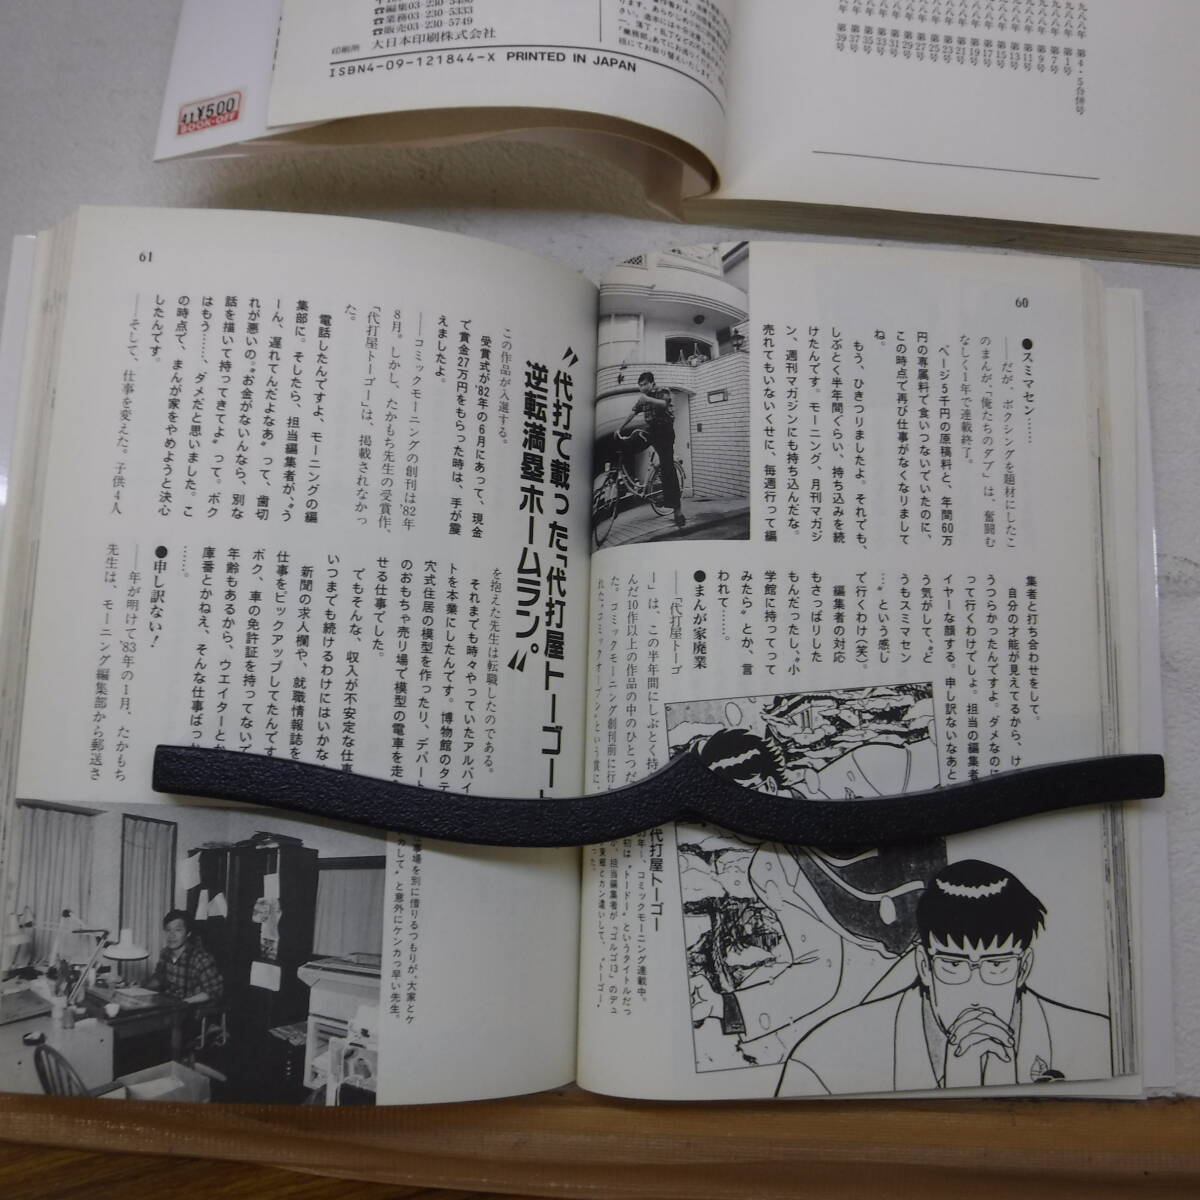 ☎編集03-230-5480
☎業務03-230-5333
☎販売03-230-5749
印刷所　大日本印刷株式会社
ISBN4-09-121844-X PRINTED IN JAPAN
¥500
BOOK-OFF
第4・5合併号
第1号
第7号
第9号
第11号
第13号
第19号
第21号
第23号
第25号
第27号
第29号
第31号
第33号
第35号
第37号
第39号
60
●スミマセン……
――だが、ボクシングを題材にしたこ
のまんが、「俺たちのダブ」は、奮闘む
なしく1年で連載終了。
〝ページ5千円の原稿料と、年間60万
円の専属料で食いつないでいたのに、
この時点で再び仕事がなくなりまして
ね。
もう、ひきつりましたよ。それでも、
しぶとく半年間ぐらい、持ち込みを続
けたんです。モーニング、月刊マガジ
ン、週刊マガジンにも持ち込んだな。
売れてもいないくせに、毎週行って編
集者と打ち合わせをして。
自分の才能が見えてるから、け
うつらかったんですよ。ダメなのに
って行くわけでしょ。担当の編集者
イヤーな顔する。申し訳ないなあと
う気がして、〝ど
うもスミマセン
…〟という感じ
で行くわけ(笑)。
編集者の対応
もさっぱりした
もんだったし、〝小
学館に持ってって
みたら〟とか、言
われて……。
●まんが家廃業
――「代打屋トーゴ
ー」は、この半年間にしぶとく持
んだ10作以上の作品の中のひとつだ
た。コミックモーニング創刊前に行
れた、〝コミックオープン〟という賞に、
代打屋トーゴー
年ー、コミックモーニング連載中。
初は〝トードー〟というタイトルだっ
が、担当編集者が「ゴルゴ13」のデュ
東郷とカン違いして、〝トーゴー
った。
61
〝代打で載った「代打屋トーゴー
逆転満塁ホームラン。〟
この作品が入選する。
受賞式が'82年の6月にあって、現金
で賞金27万円をもらった時は、手が震
えましたよ。
――コミックモーニングの創刊は'82年
8月。しかし、たかもち先生の受賞作、
「代打屋トーゴー」は、掲載されなかっ
た。
電話したんですよ、モーニングの編
集部に。そしたら、担当編集者が、〝う
ーん、遅れてんだよなあ〟って、歯切
れが悪いの。〝お金がないんなら、別な
話を描いて持ってきてよ〟って。ボク
はもう……、ダメだと思いました。こ
の時点で、まんが家をやめようと決心
したんです。
――そして、仕事を変えた。子供4人
を抱えた先生は転職したのである。
それまでも時々やっていたアルバイ
トを本業にしたんです。博物館のタテ
穴式住居の模型を作ったり、デパート
のおもちゃ売り場で模型の電車を走
せる仕事でした。
でもそんな、収入が不安定な仕事
いつまでも続けるわけにはいかな
新聞の求人欄や、就職情報誌を
仕事をピックアップしてたんです
ボク、車の免許証を持ってないで
年齢もあるから、ウエイターとか
庫番とかねえ、そんな仕事ばっか
……。
●申し訳ない！
――年が明けて'83年の1月、たかもち
先生は、モーニング編集部から郵送さ
事場を別に借りるつもりが、大家とケ
カして〟と意外にケンカっ早い先生。